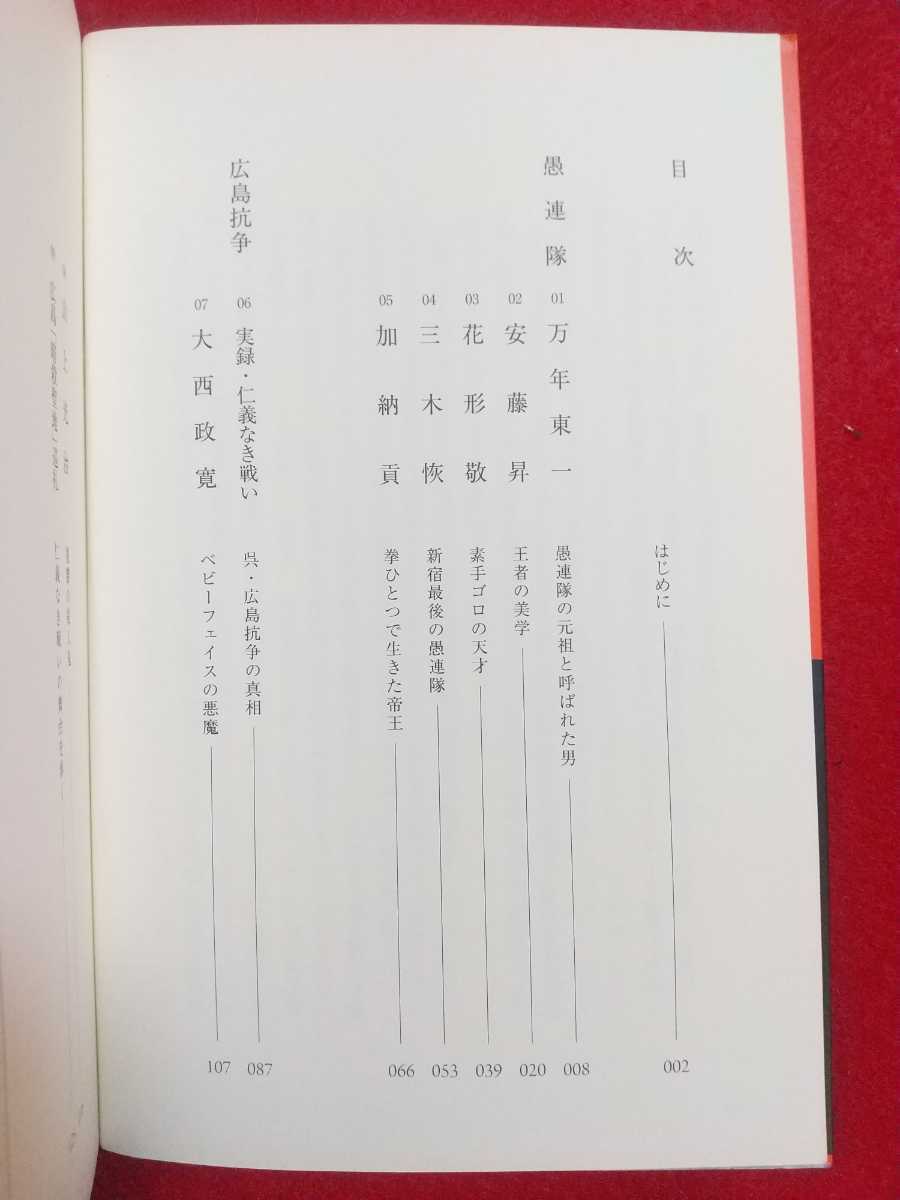 目次
はじめに 002
愚連隊
01 万年東一 愚連隊の元祖と呼ばれた男 008
02 安藤昇 王者の美学 020
03 花形敬 素手ゴロの天才 039
04 三木恢 新宿最後の愚連隊 053
05 加納貢 拳ひとつで生きた帝王 066
広島抗争
06 実録・仁義なき戦い 呉・広島抗争の真相 087
07 大西政寛 ベビーフェイスの悪魔 107